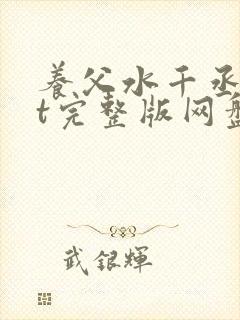 养父水千丞
t完整版网盘
武银辉